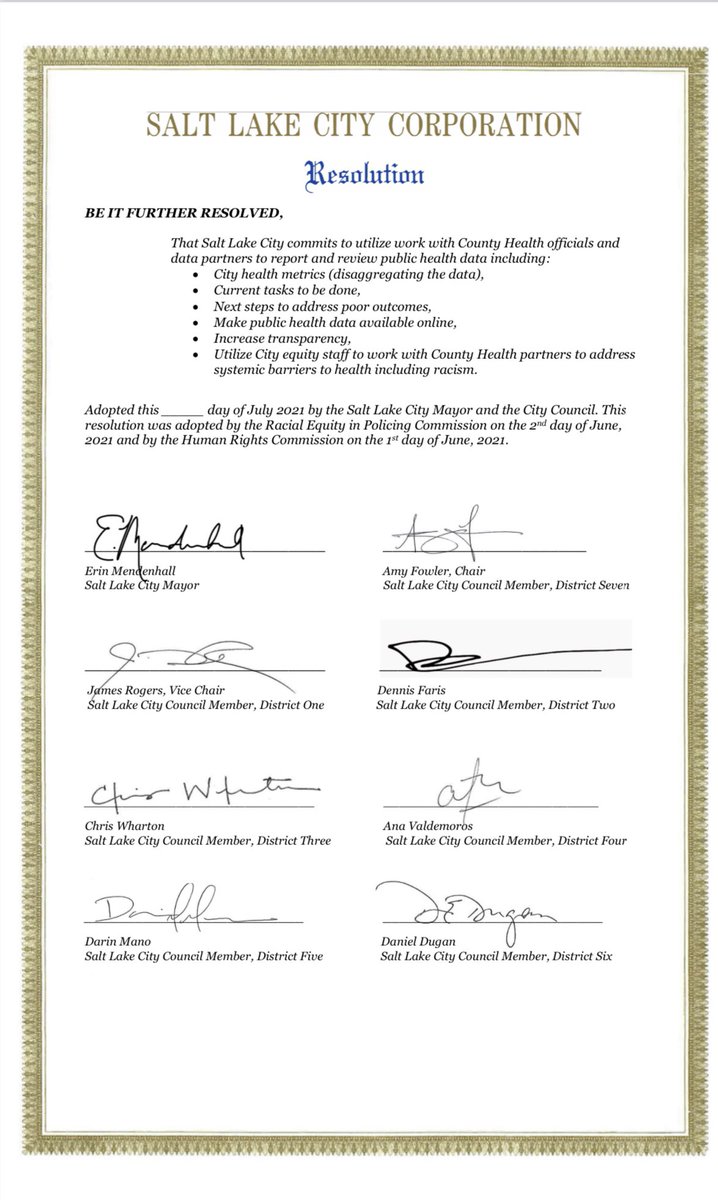 SALT LAKE CITY CORPORATION
Resolution
BE IT FURTHER RESOLVED,
That Salt Lake City commits to utilize work with County Health officials and
data partners to report and review public health data including:
• City health metrics (disaggregating the data),
• Current tasks to be done,
• Next steps to address poor outcomes,
• Make public health data available online,
• Increase transparency,
• Utilize City equity staff to work with County Health partners to address
systemic barriers to health including racism.
Adopted this _____ day of July 2021 by the Salt Lake City Mayor and the City Council. This
resolution was adopted by the Racial Equity in Policing Commission on the 2nd day of June,
2021 and by the Human Rights Commission on the 1st day of June, 2021.
E. Mendenhall
Erin Mendenhall
Salt Lake City Mayor
Amy Fowler, Chair
Salt Lake City Council Member, District Seven
James Rogers, Vice Chair
Salt Lake City Council Member, District One
Dennis Faris
Salt Lake City Council Member, District Two
Chris Wharton
Chris Wharton
Salt Lake City Council Member, District Three
Ana Valdemoros
Salt Lake City Council Member, District Four
Darin Mano
Salt Lake City Council Member, District Five
D E Dugan
Daniel Dugan
Salt Lake City Council Member, District Six